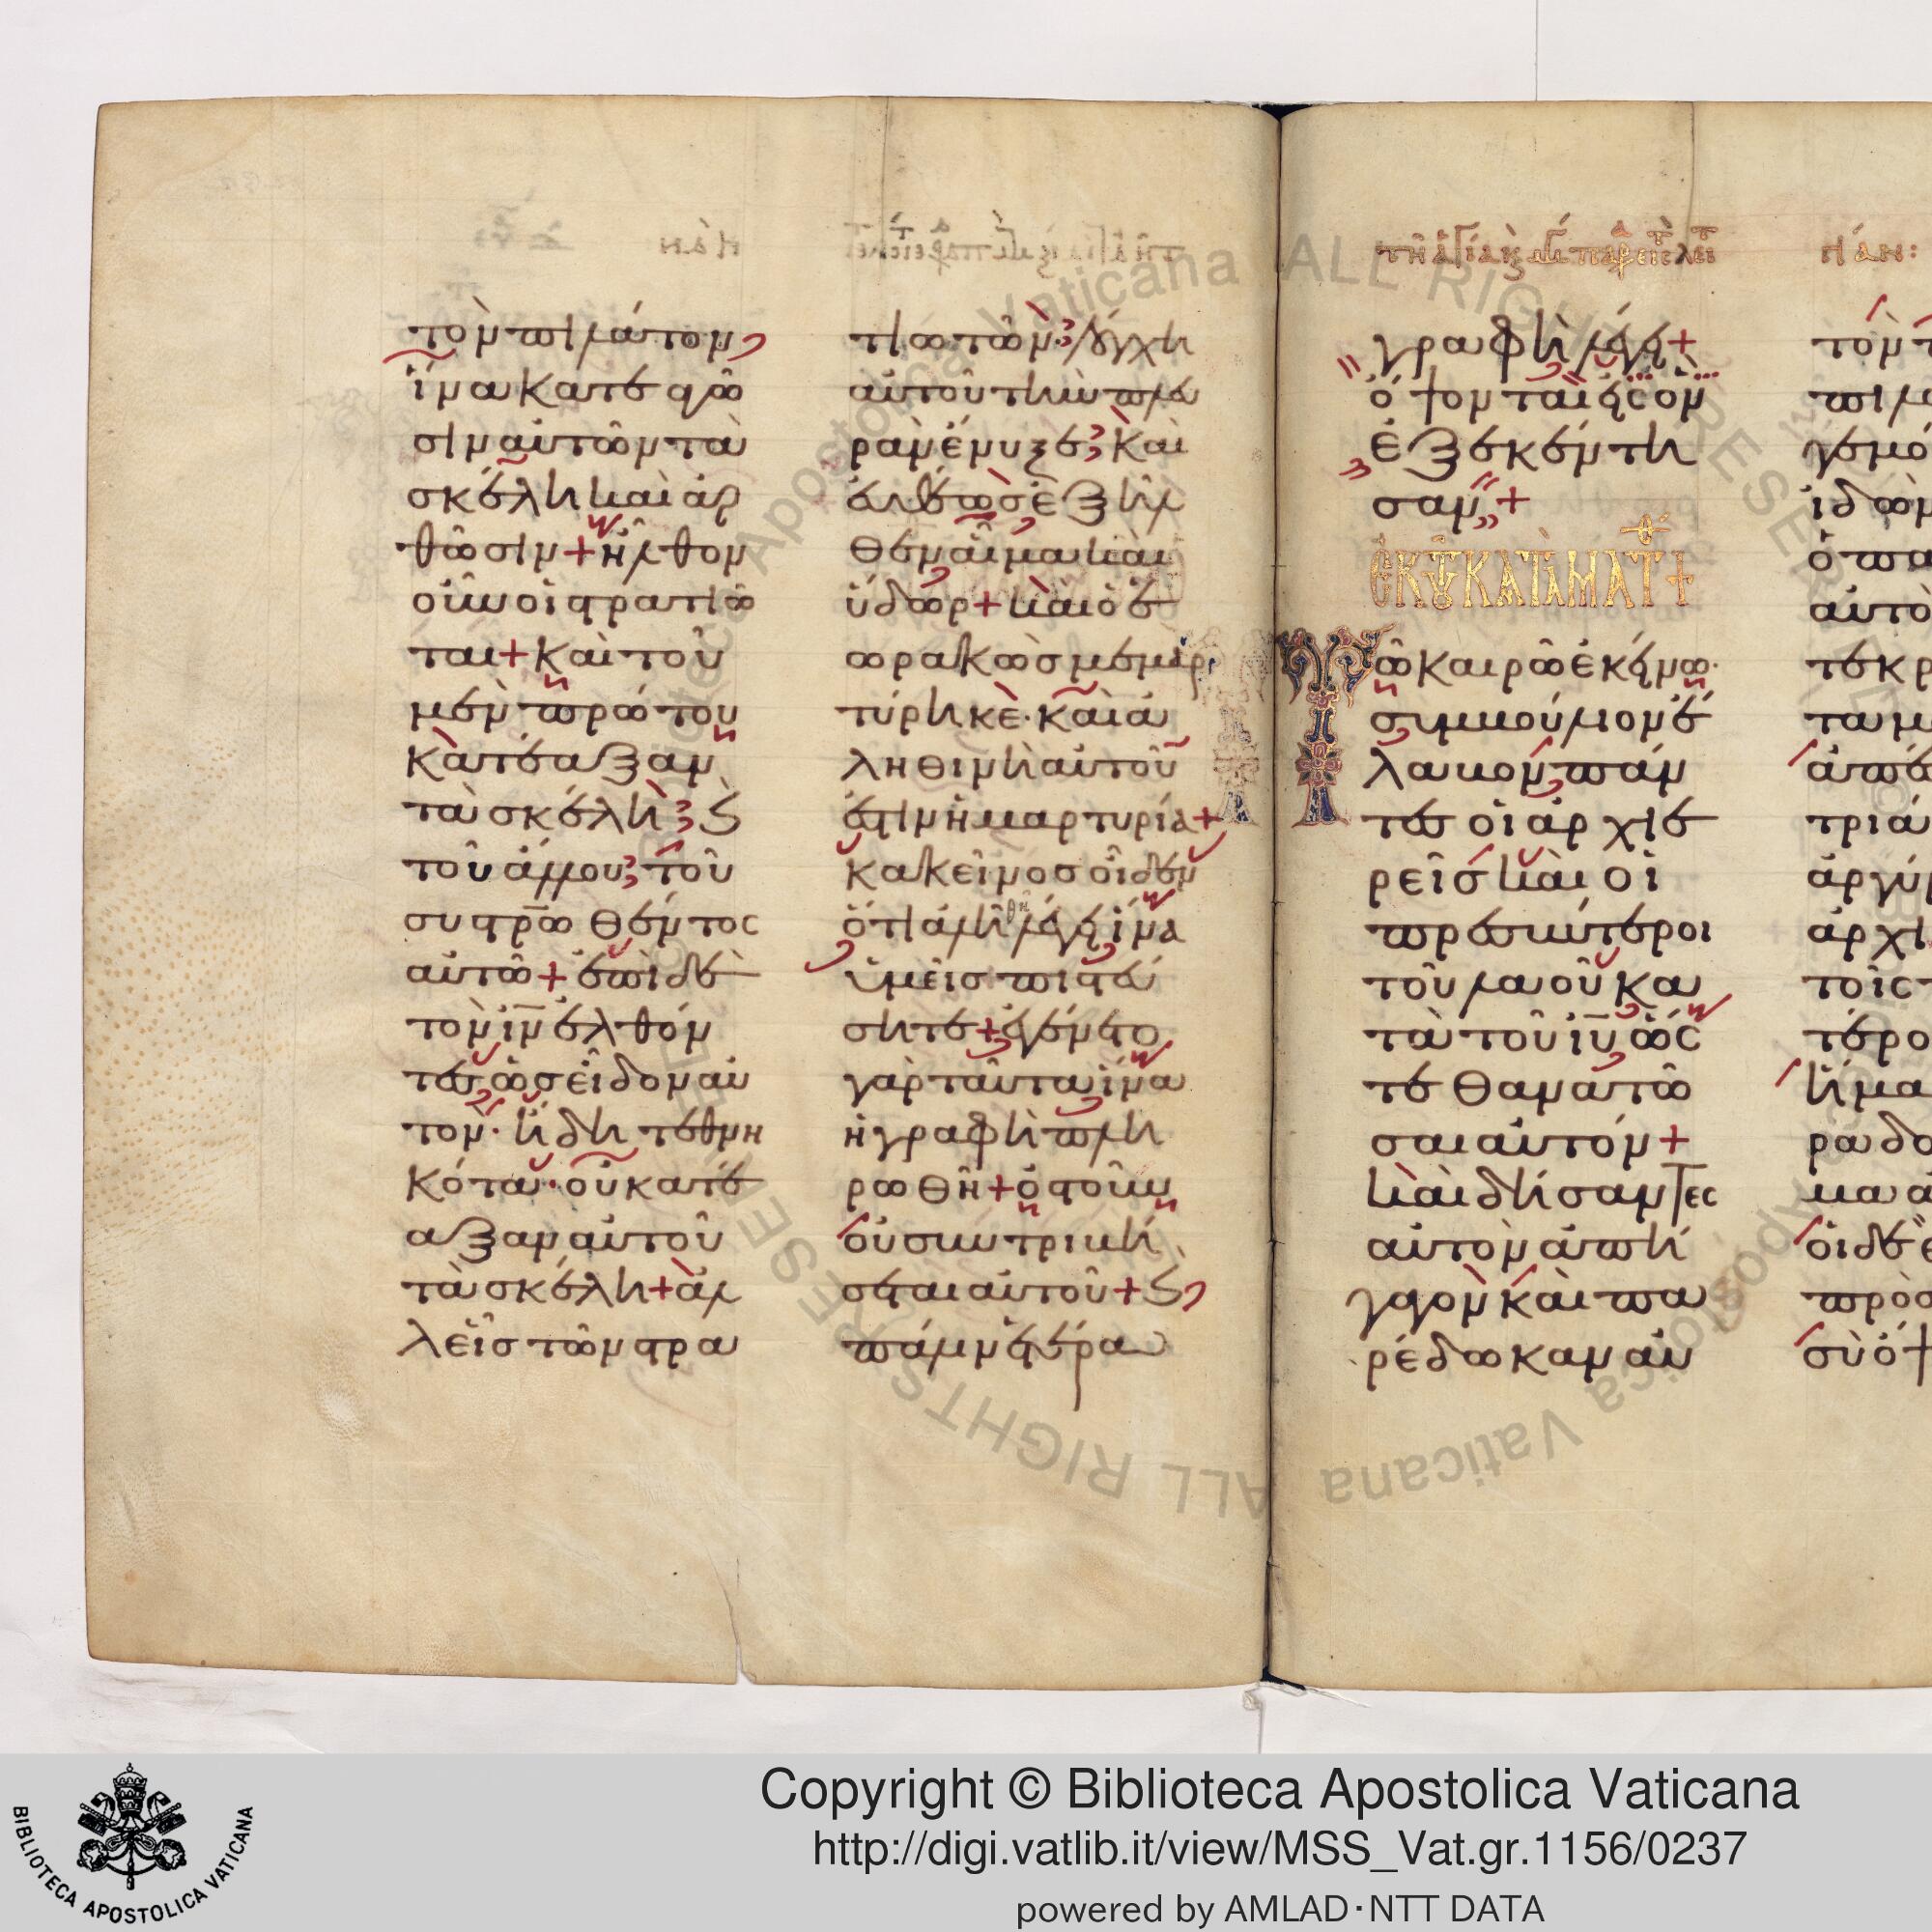 τὸν πιλάτον
ἵνα κατεαγῶ
σιν αὐτῶν τὰ
σκέλη καὶ ἀρ
θῶσιν + ἦλθον
οὖν οἱ στρατιῶ
ται + καὶ τοῦ
μὲν πρώτου
κατέαξαν
τὰ σκέλη
τοῦ ἄλλου τοῦ
συστρωθέντος
αὐτῶ + ἐπὶ δὲ
τὸν ιν ἐλθόν
τες ὡς εἶδον αὐ
τὸν· ἤδη τεθνη
κότα· οὐ κατέ
αξαν αὐτοῦ
τὰ σκέλη + ἀλ
λεῖς τῶν στρα
τιωτῶν λόγχη
αὐτοῦ τὴν πλευ
ρὰν ἔνυξε καὶ
εὐθέως ἐξῆλ
θεν αἷμα καὶ
ὕδωρ + καὶ ὁ ἑ
ωρακὼς μεμαρ
τύρηκε· καὶ ἀ
ληθινὴ αὐτοῦ
ἐστιν ἡ μαρτυρία +
κακεῖνος οἶδεν
ὅτι ἀληθῆ λέγει ἵνα
ὑμεῖς πιστεύ
σητε + ἐγένετο
γὰρ ταῦτα ἵνα
ἡ γραφὴ πλη
ρωθῆ + ὀστοῦν
οὐ συντριβή
σεται αὐτοῦ +
πάλιν ἑτέρα
γραφὴ λέγει +
ὄψονται εἰς ὃν
ἐξεκέντη
σαν +
ἐκ τοῦ κατὰ ματθ +
Τῶ καιρῶ ἐκείνω·
συμβούλιον ἔ
λαβον πάν
τες οἱ ἀρχιε
ρεῖς καὶ οἱ
πρεσβύτεροι
τοῦ λαοῦ κα
τὰ τοῦ ιυ ὥς
τε θανατῶ
σαι αὐτόν +
καὶ δήσαντες
αὐτὸν ἀπή
γαγον καὶ πα
ρέδωκαν αὐ
τὸν
πιλ
γεμό
ἰδὼν
ὁ πα
αὐτὸ
τεκρ
ταμ
ἀπέ
τριά
ἀργύ
ἀρχι
τοῖς
τέρο
ἥμα
ραδο
μα ἀ
οἱ δὲ
πρὸς
σὺ ὄψ
BIBLIOTECA APOSTOLICA VATICANA
Copyright © Biblioteca Apostolica Vaticana
http://digi.vatlib.it/view/MSS_Vat.gr.1156/0237
powered by AMLAD·NTT DATA